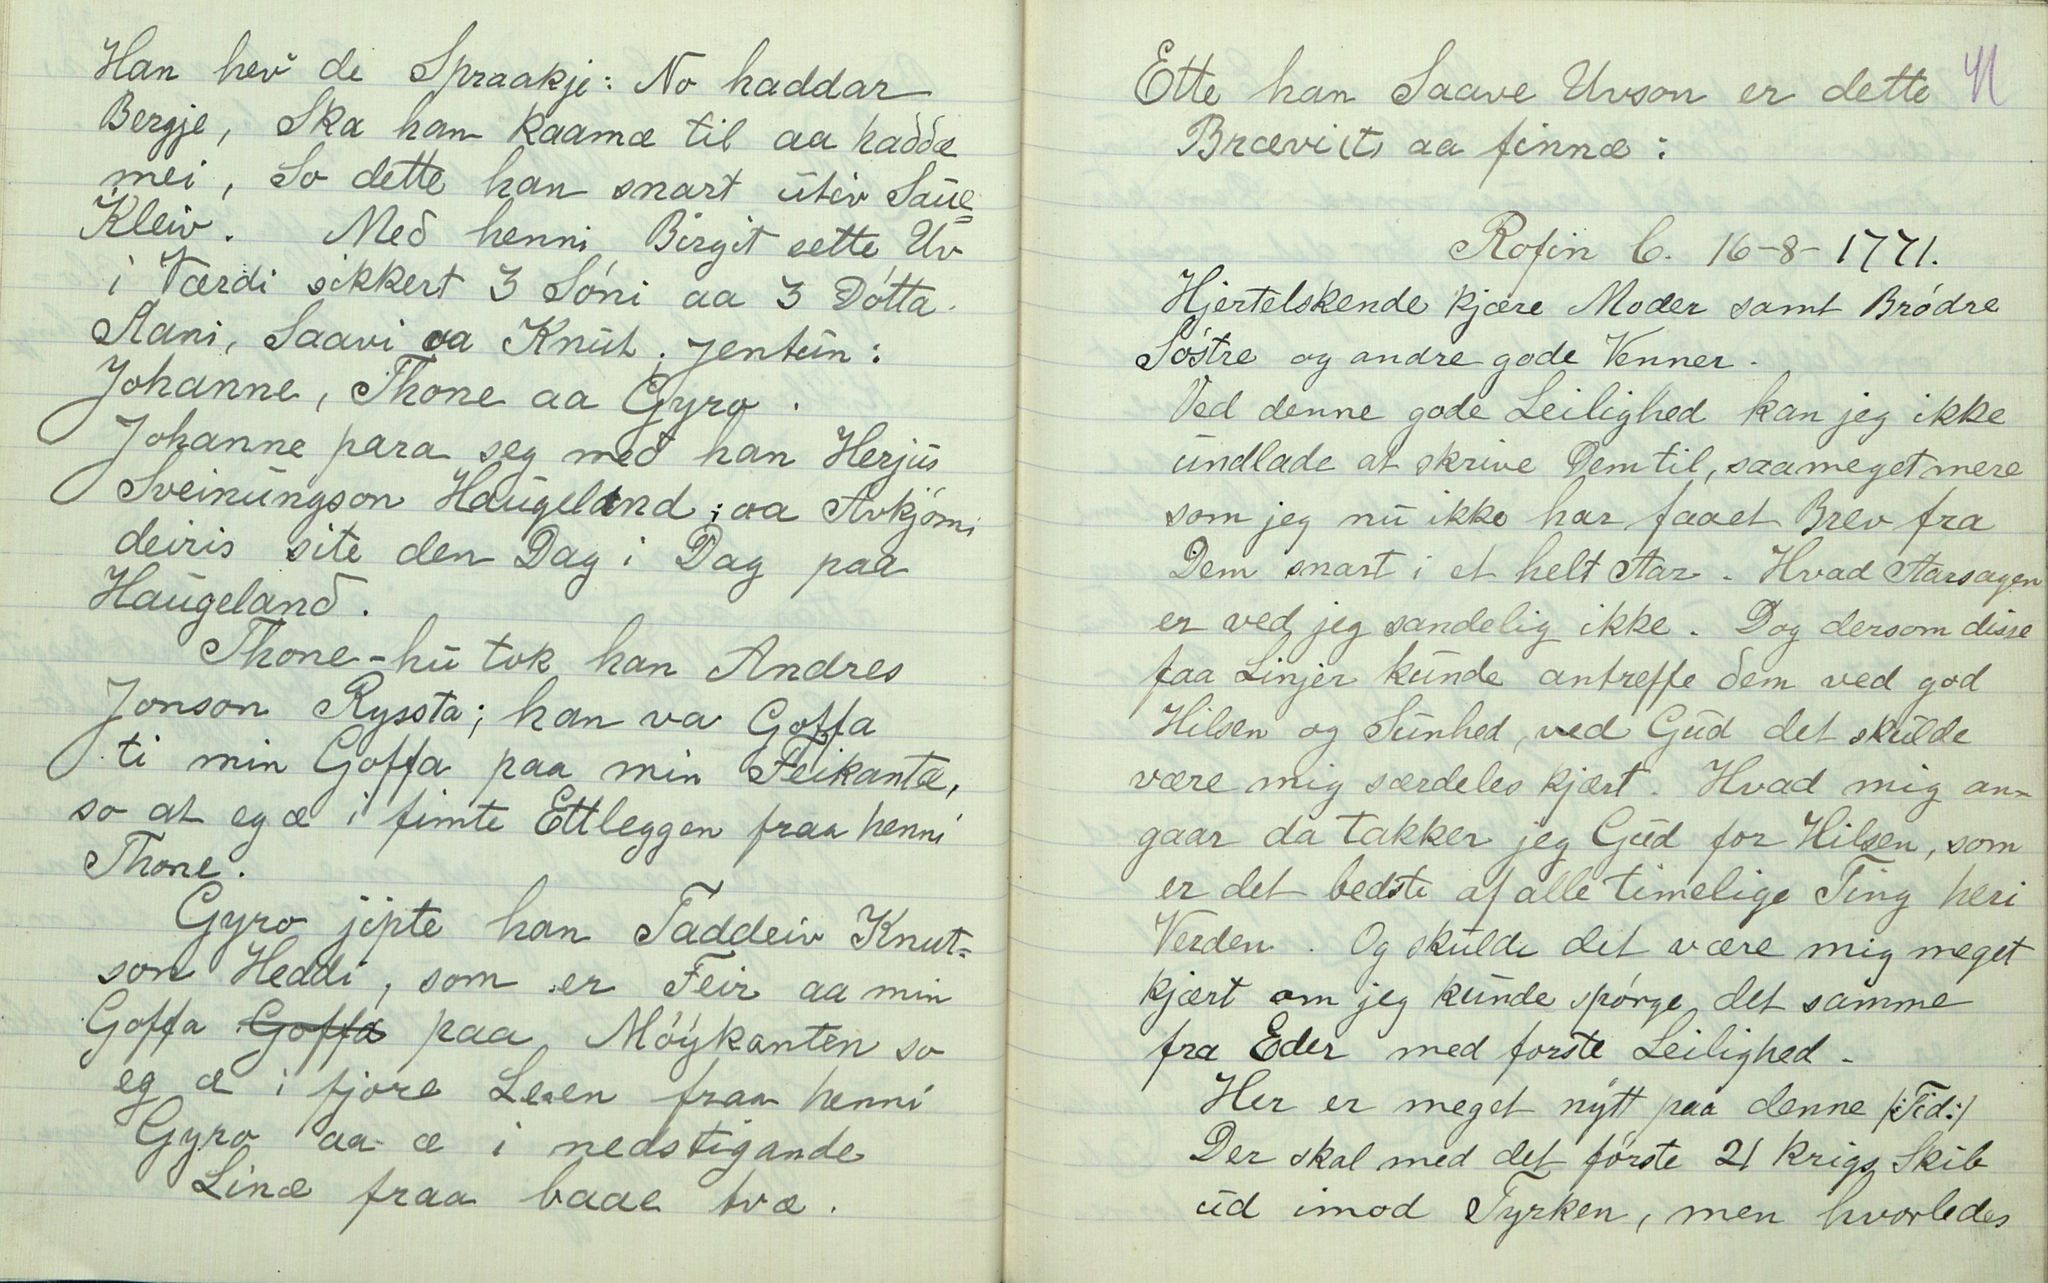 Han hev de Spraakje: No haddar
Bergje, Ska han kaamæ til aa haddæ
mei, So dette han snart utiv Saue=
Kleiv. Með henni Birgit sette Uv
i Værdi sikkert 3 Sóni aa 3 Dótta.
Aani, Saavi aa Knut. Jentun:
Johanne, Thone aa Gyro.
Johanne para seg með han Herjus
Sveinungson Haugeland; aa Avkjómi
deiris site den Dag i Dag paa
Haugeland.
Thone - hu tok han Andres
Jonson Ryssta; han va Goffa
ti min Goffa paa min Feikantæ,
so at eg æ i fimte Ettleggen fraa henni
Thone.
Gyro jipte han Taddeiv Knut-
son Heddi, som er Feir aa min
Goffa Goffa paa Móykanten so
eg æ i fjore Leen fraa henni
Gyro aa æ i nedstigande
Linæ fraa baae tvæ.
Ette han Saave Uvson er dette 41
Brævi(t) aa finnæ:
Rofin C. 16-8-1771.
Hjertelskende kjære Moder samt Bródre
Sóstre og andre gode Venner.
Ved denne gode Leilighed kan jeg ikke
undlade at skrive Dem til, saameget mere
som jeg nu ikke har faaet Brev fra
Dem snart i et helt Aar. Hvad Aarsagen
er ved jeg sandelig ikke. Dog dersom disse
faa Linjer kunde antreffe dem ved god
Hilsen og Sunhed, ved Gud det skulde
være mig særdeles kjært. Hvad mig an-
gaar da takker jeg Gud for Hilsen, som
er det bedste af alle timelige Ting heri
Verden. Og skulde det være mig meget
kjært om jeg kunde spórge det samme
fra Eder med forste Leilighed.
Her er meget nýtt paa denne /:Tid:/
Der skal med det fórste 21 Krigs Skib
ud imod Tyrken, men hvorledes